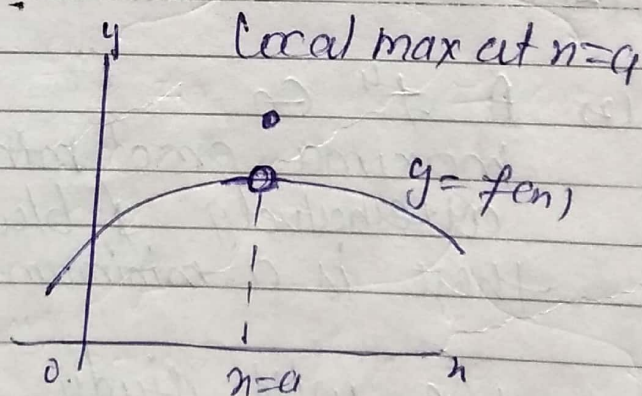 y
Local max at x=a
y=f(x)
0
x=a
x